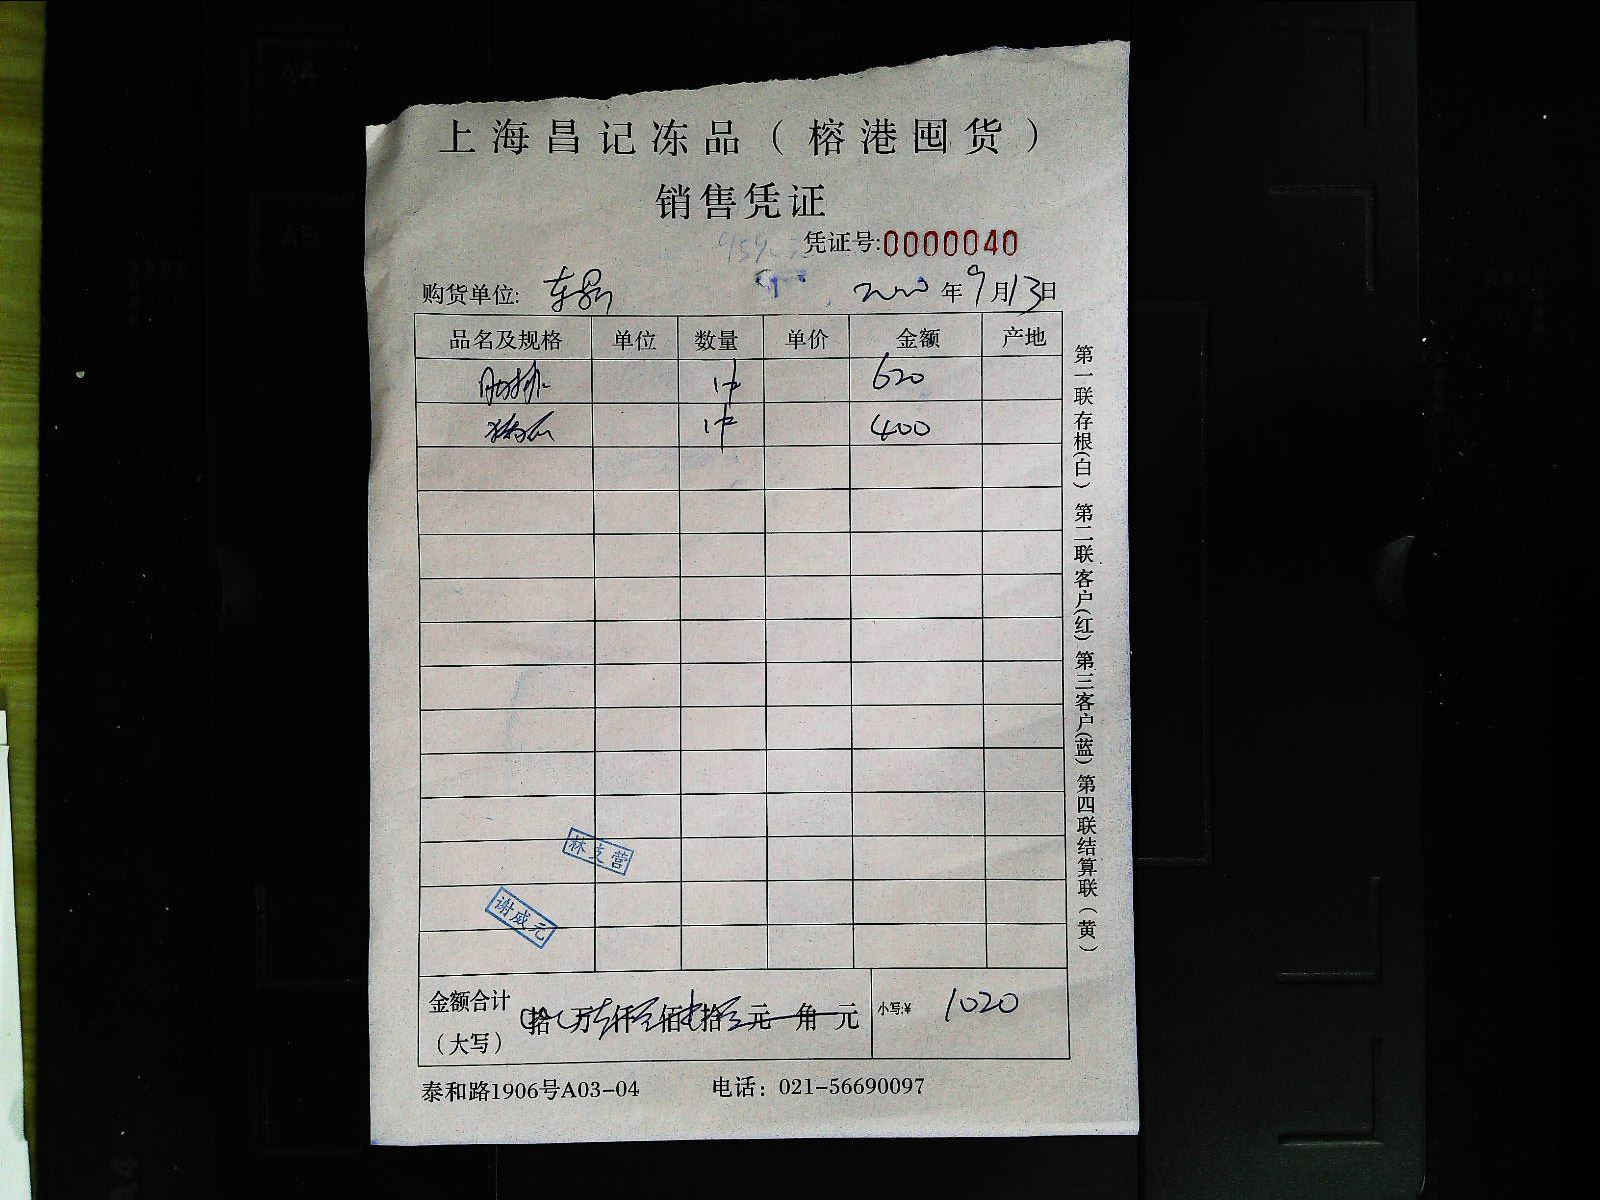 上海昌记冻品（榕港囤货）
销售凭证
凭证号:0000040
购货单位: 年9月13日
品名及规格 单位 数量 单价 金额 产地
肋排 1件 620
1件 400
金额合计（大写） 拾 万 仟 佰 拾 元 角 元 小写:¥ 1020
泰和路1906号A03-04 电话：021-56690097
第一联存根(白) 第二联客户(红) 第三客户(蓝) 第四联结算联(黄)
谢成元